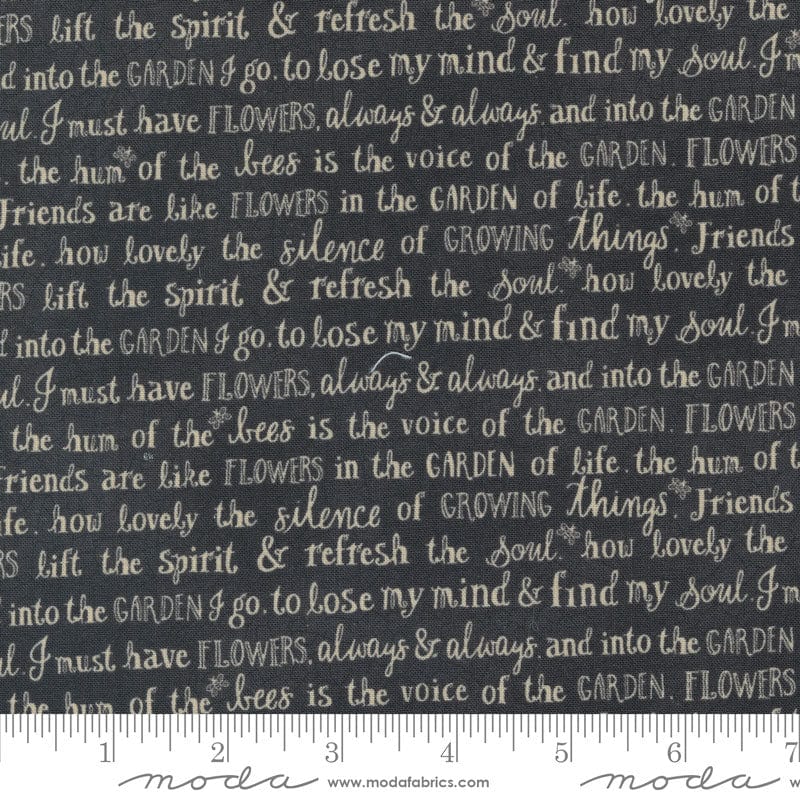 lift the spirit & refresh the soul. how lovely the
into the GARDEN I go. to lose my mind & find my soul. I
I must have FLOWERS, always & always. and into the GARDEN
. the hum of the bees is the voice of the GARDEN. FLOWERS
Friends are like FLOWERS in the GARDEN of life. the hum of
life. how lovely the silence of GROWING things. Friends
lift the spirit & refresh the soul. how lovely the
into the GARDEN I go. to lose my mind & find my soul. I
I must have FLOWERS, always & always. and into the GARDEN
the hum of the bees is the voice of the GARDEN. FLOWERS
Friends are like FLOWERS in the GARDEN of life. the hum of
life. how lovely the silence of GROWING things. Friends
lift the spirit & refresh the soul. how lovely the
into the GARDEN I go. to lose my mind & find my soul. I
I must have FLOWERS, always & always. and into the GARDEN
the hum of the bees is the voice of the GARDEN. FLOWERS
1 2 3 4 5 6 7
moda www.modafabrics.com moda